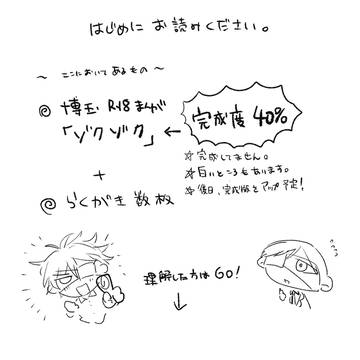 はじめに お読みください。
～ ここにおいてあるもの ～
◎ 博玉 R18 まんが
「ゾクゾク」 ←
完成度 40%
☆ 完成してません。
☆ 白いところもあります。
☆ 後日、完成版をアップ予定!
+
◎ らくがき 数枚
理解した方は GO!
↓